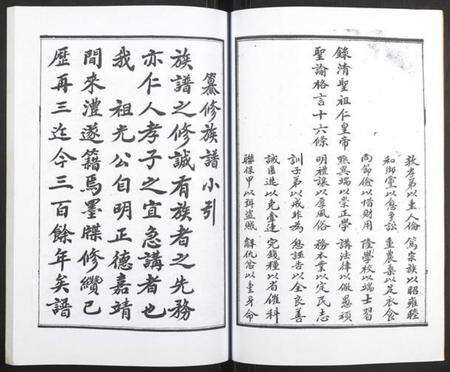 錄清聖祖仁皇帝
聖諭格言十六條
敦孝弟以重人倫　篤宗族以昭雍睦
和鄉黨以息爭訟　重農桑以足衣食
尚節儉以惜財用　隆學校以端士習
黜異端以崇正學　講法律以儆愚頑
明禮讓以厚風俗　務本業以定民志
訓子弟以戒非為　息誣告以全良善
誡匿逃以免牽連　完錢糧以省催科
聯保甲以弭盜賊　解仇忿以重身命
纂修族譜小引
族譜之修誠有族者之先務
亦仁人孝子之宜急講者也
我　祖光公自明正德嘉靖
間來澧遂籍焉墨牒修纘已
歷再三迄今三百餘年矣譜